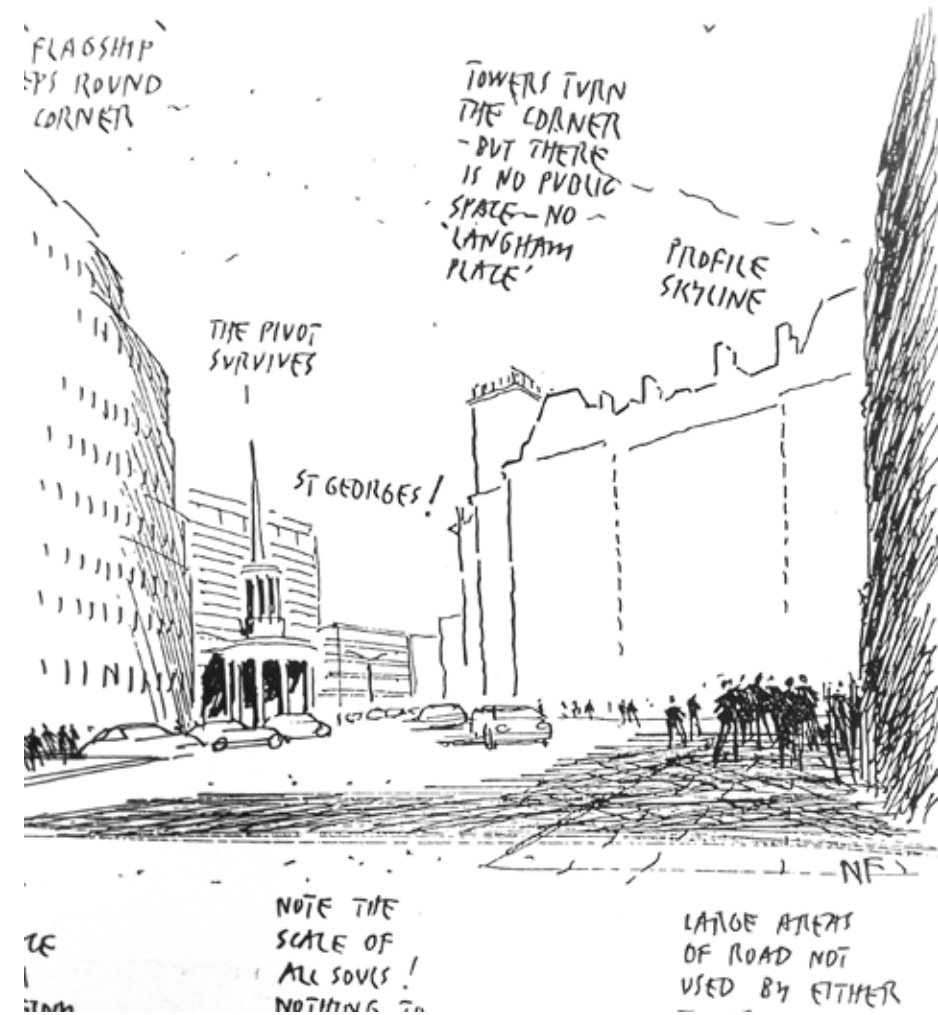 'FLAGSHIP'
ROUND
CORNER
TOWERS TURN
THE CORNER
- BUT THERE
IS NO PUBLIC
SPACE - NO
'LANGHAM
PLACE'
PROFILE
SKYLINE
THE PIVOT
SURVIVES
ST GEORGES!
NF
NOTE THE
SCALE OF
ALL SOULS!
NOTHING TO
LARGE AREAS
OF ROAD NOT
USED BY EITHER